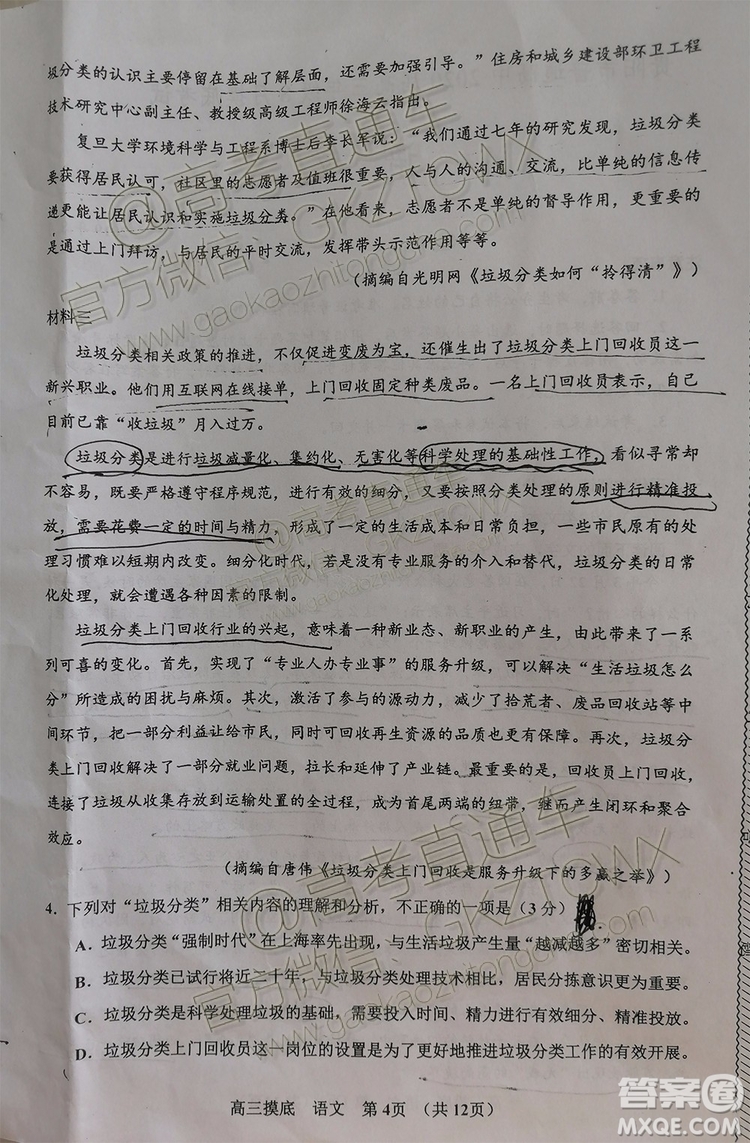 圾分类的认识主要停留在基础了解层面，还需要加强引导。”住房和城乡建设部环卫工程
技术研究中心副主任、教授级高级工程师徐海云指出。
复旦大学环境科学与工程系博士后李长军说：“我们通过七年的研究发现，垃圾分类
要获得居民认可，社区里的志愿者及值班很重要，人与人的沟通、交流，比单纯的信息传
递更能让居民认识和实施垃圾分类。”在他看来，志愿者不是单纯的督导作用，更重要的
是通过上门拜访，与居民的平时交流，发挥带头示范作用等等。
（摘编自光明网《垃圾分类如何“拎得清”》）
材料三
垃圾分类相关政策的推进，不仅促进变废为宝，还催生出了垃圾分类上门回收员这一
新兴职业。他们用互联网在线接单，上门回收固定种类废品。一名上门回收员表示，自己
目前已靠“收垃圾”月入过万。
垃圾分类是进行垃圾减量化、集约化、无害化等科学处理的基础性工作，看似寻常却
不容易，既要严格遵守程序规范，进行有效的细分，又要按照分类处理的原则进行精准投
放，需要花费一定的时间与精力，形成了一定的生活成本和日常负担，一些市民原有的处
理习惯难以短期内改变。细分化时代，若是没有专业服务的介入和替代，垃圾分类的日常
化处理，就会遭遇各种因素的限制。
垃圾分类上门回收行业的兴起，意味着一种新业态、新职业的产生，由此带来了一系
列可喜的变化。首先，实现了“专业人办专业事”的服务升级，可以解决“生活垃圾怎么
分”所造成的困扰与麻烦。其次，激活了参与的源动力，减少了拾荒者、废品回收站等中
间环节，把一部分利益让给市民，同时可回收再生资源的品质也更有保障。再次，垃圾分
类上门回收解决了一部分就业问题，拉长和延伸了产业链。最重要的是，上门回收，
连接了垃圾从收集存放到运输处置的全过程，成为首尾两端的纽带，继而产生闭环和聚合
效应。
（摘编自唐伟《垃圾分类上门回收是服务升级下的多赢之举》）
4．下列对“垃圾分类”相关内容的理解和分析，不正确的一项是（3 分）
A．垃圾分类“强制时代”在上海率先出现，与生活垃圾产生量“越减越多”密切相关。
B．垃圾分类已试行将近二十年，与垃圾分类处理技术相比，居民分拣意识更为重要。
C．垃圾分类是科学处理垃圾的基础，需要投入时间、精力进行有效细分、精准投放。
D．垃圾分类上门回收员这一岗位的设置是为了更好地推进垃圾分类工作的有效开展。
高三摸底 语文 第 4页 （共 12页）
@高考直通车
官方微信：GKZTCWX
www.gaokaozhitongche.com
@高考直通车
官方微信：GKZTCWX
答案圈
MXQE.COM